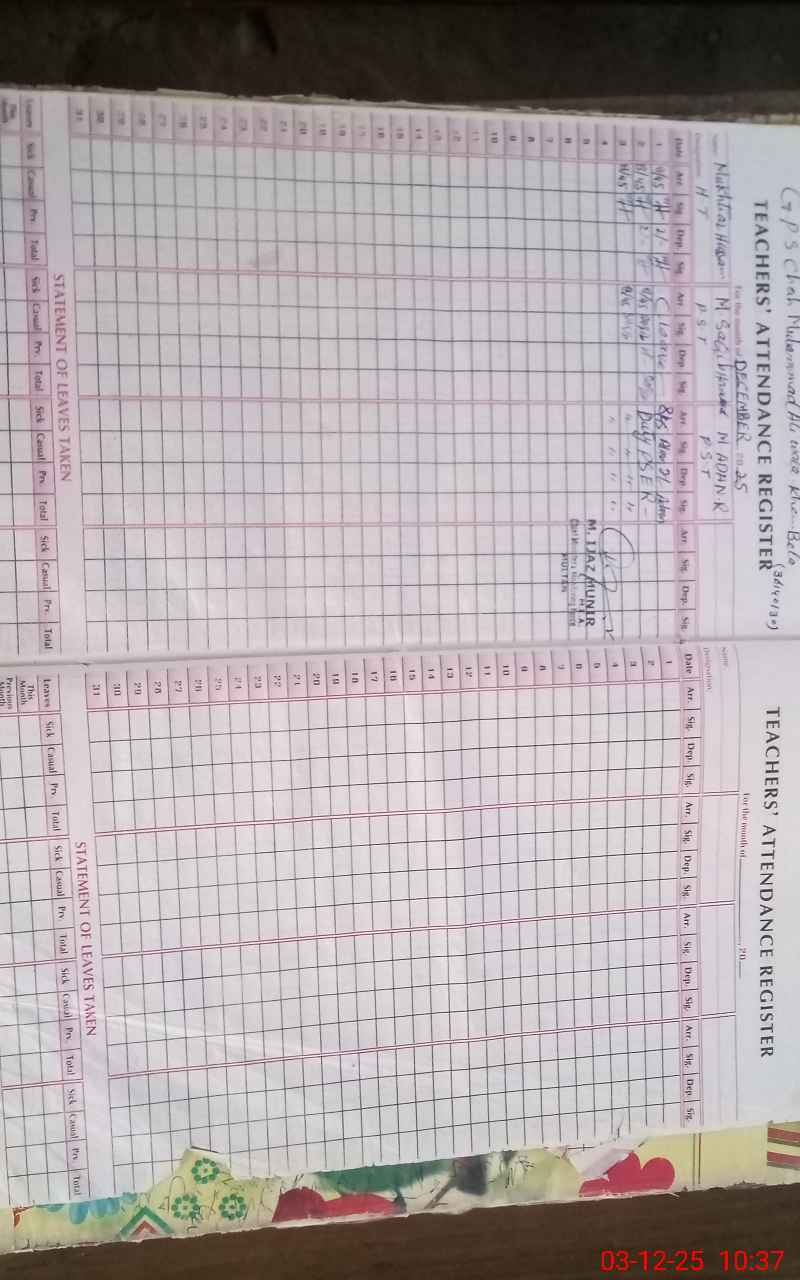 G P S Chah Muhammad Ali wala Khan Bela
TEACHERS' ATTENDANCE REGISTER (36140130)
For the month of DECEMBER 2025
Name Mukhtiar Hussain M Saqib M ADNAN.R
Designation H T P S T P S T
Date Arr. Sig. Dep. Sig. Arr. Sig. Dep. Sig. Arr. Sig. Dep. Sig. Arr. Sig. Dep. Sig.
1 8/45 2/- C Leave 8/45 2/-
2 8/45 2/- 8/45 Duty PSER -
3 8/45 8/45 " " " "
4 " " " "
5
6
7
8
9
10
11
12
13
14
15
16
17
18
19
20
21
22
23
24
25
26
27
28
29
30
31
M. IJAZ MUNIR
M E A
Chief Ministers Monitoring Force
MULTAN
STATEMENT OF LEAVES TAKEN
Leaves Sick Casual Prv. Total Sick Casual Prv. Total Sick Casual Prv. Total Sick Casual Prv. Total
This Month
TEACHERS' ATTENDANCE REGISTER
For the month of 20
Name
Designation
Date Arr. Sig. Dep. Sig. Arr. Sig. Dep. Sig. Arr. Sig. Dep. Sig. Arr. Sig. Dep. Sig.
1
2
3
4
5
6
7
8
9
10
11
12
13
14
15
16
17
18
19
20
21
22
23
24
25
26
27
28
29
30
31
STATEMENT OF LEAVES TAKEN
Leaves Sick Casual Prv. Total Sick Casual Prv. Total Sick Casual Prv. Total Sick Casual Prv. Total
This Month
Previous Month
03-12-25 10:37